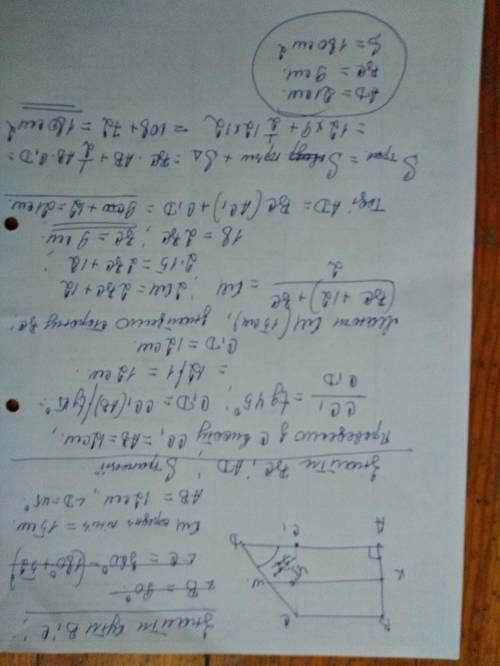 Знайти кути В і С
∠B = 90°
∠C = 360° - (180° + 52°)
B
C
K
M
A
C₁
D
СМ середня лінія = 15 см.
AB = 12 см, ∠D = 45°
Знайти BC, AD, S трапеції
Проведемо з С висоту CC₁ = AB = 12 см,
CC₁ / C₁D = tg 45°; C₁D = CC₁(AB) / tg 45° =
= 12/1 = 12 см
C₁D = 12 см.
(15 см), знайдемо сторону BC:
(BC + 12) + BC / 2 = СМ; 2СМ = 2BC + 12
2·15 = 2BC + 12;
18 = 2BC; BC = 9 см.
Тоді AD = BC (AC₁) + C₁D = 9см + 12 = 21 см.
S трап = S прям + S△ = BC·AB + 1/2 AB·C₁D =
= 12×9 + 1/2 12×12 = 108 + 72 = 180 см²
AD = 21 см.
BC = 9 см.
S = 180 см²